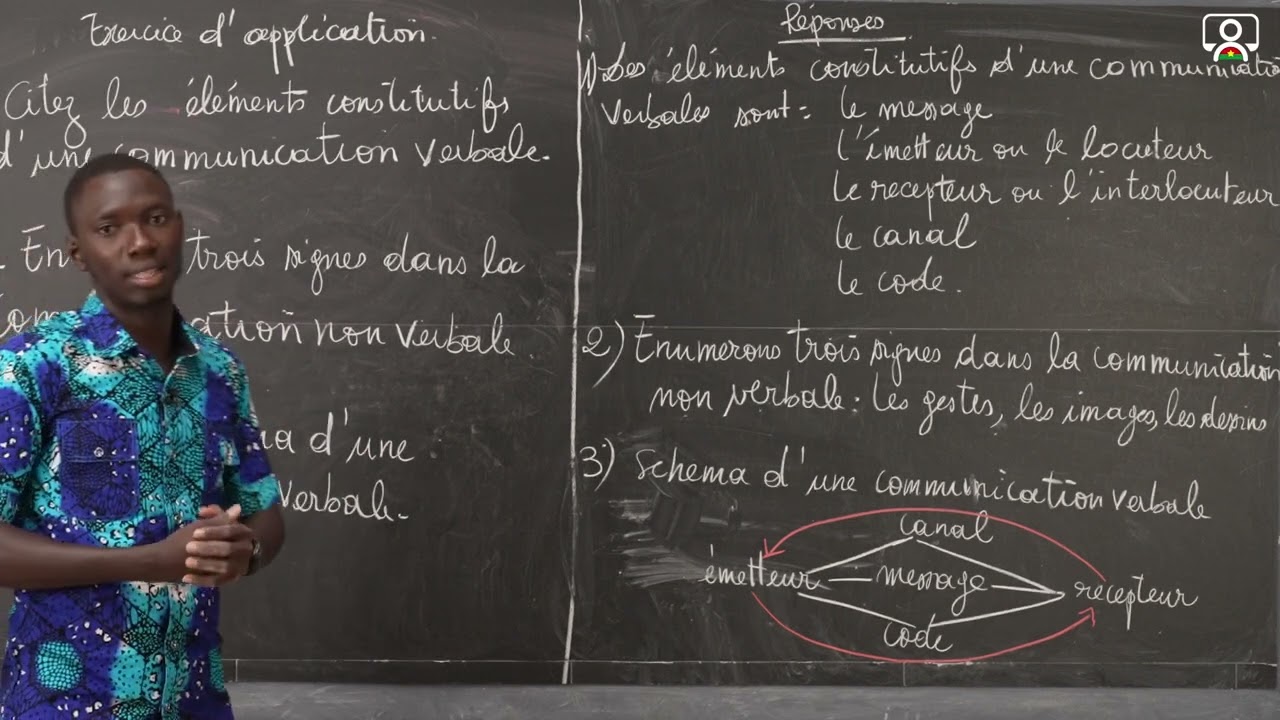 Exercice d'application.
Citez les éléments constitutifs
d'une communication verbale.
trois signes dans la
non verbale.
d'une
verbale.
Réponses
1) Les éléments constitutifs d'une communication
verbales sont: le message
l'émetteur ou le locuteur
le recepteur ou l'interlocuteur
le canal
le code.
2) Enumerons trois signes dans la communication
non verbale: Les gestes, les images, les dessins
3) Schema d'une communication verbale
canal
émetteur message recepteur
code